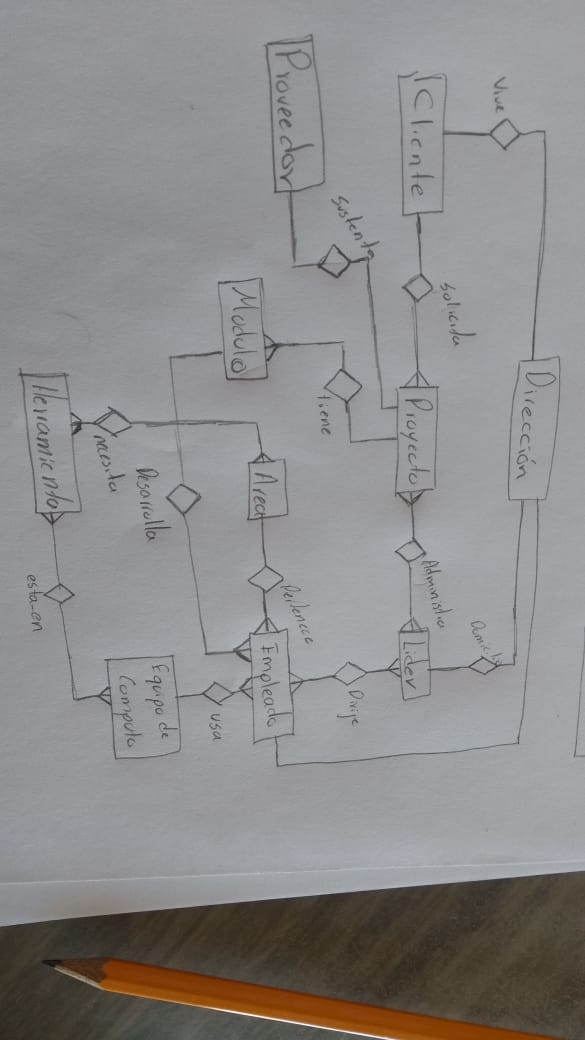 Dirección
Vive
Domicilio
Solicita
Cliente
Proyecto
Administra
Lider
Sustenta
tiene
Dirije
Proveedor
Pertenece
Area
Empleado
Modulo
usa
Desarrolla
Equipo de
Computo
necesita
Herramienta
esta-en